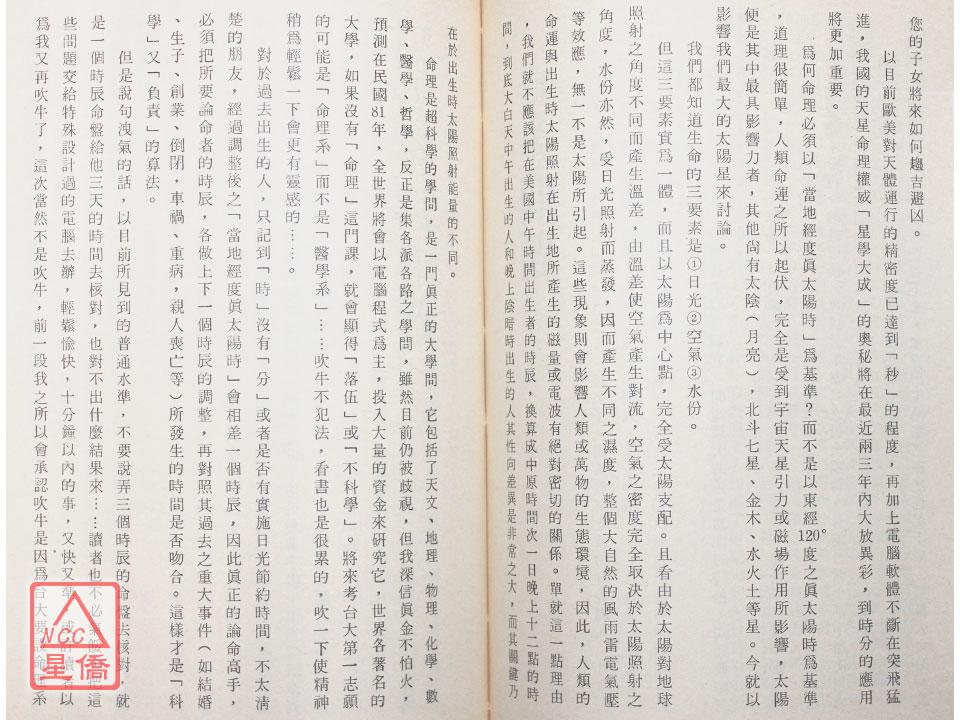 您的子女將來如何趨吉避凶。
以目前歐美對天體運行的精密度已達到「秒」的程度，再加上電腦軟體不斷在突飛猛
進，我國的天星命理權威「星學大成」的奧秘將在最近兩三年內大放異彩，到時分的應用
將更加重要。
爲何命理必須以「當地經度眞太陽時」爲基準？而不是以東經120°度之眞太陽時爲基準
，道理很簡單，人類命運之所以起伏，完全是受到宇宙天星引力或磁場作用所影響，太陽
便是其中最具影響力者，其他尚有太陰（月亮），北斗七星、金木、水火土等星。今就以
影響我們最大的太陽星來討論。
我們都知道生命的三要素是①日光②空氣③水份。
但這三要素實爲一體，而且以太陽爲中心點，完全受太陽支配。且看由於太陽對地球
照射之角度不同而產生溫差，由溫差使空氣產生對流，空氣之密度完全取決於太陽照射之
角度，水份亦然，受日光照射而蒸發，因而產生不同之濕度，整個大自然的風雨雷電氣壓
等效應，無一不是太陽所引起。這些現象則會影響人類或萬物的生態環境，因此，人類的
命運與出生時太陽照射在出生地所產生的磁量或電波有絕對密切的關係。單就這一點理由
，我們就不應該把在美國中午時間出生者的時辰，換算成中原時間次一日晚上十二點的時
間，到底大白天中午出生的人和晚上陰暗時出生的人其性向差異是非常之大，而其關鍵乃
在於出生時太陽照射能量的不同。
命理是超科學的學問，是一門眞正的大學問，它包括了天文、地理、物理、化學、數
學、醫學、哲學，反正是集各派各路之學問，雖然目前仍被歧視，但我深信眞金不怕火，
預測在民國81年，全世界將會以電腦程式爲主，投入大量的資金來研究它，世界各著名的
大學，如果沒有「命理」這門課，就會顯得「落伍」或「不科學」。將來考台大第一志願
的可能是「命理系」而不是「醫學系」……吹牛不犯法，看書也是很累的，吹一下使精神
稍爲輕鬆一下會更有靈感的……。
對於過去出生的人，只記到「時」沒有「分」或者是否有實施日光節約時間，不太淸
楚的朋友，經過調整後之「當地經度眞太陽時」會相差一個時辰，因此眞正的論命高手，
必須把所要論命者的時辰，各做上下一個時辰的調整，再對照其過去之重大事件（如結婚
、生子、創業、倒閉，車禍、重病，親人喪亡等）所發生的時間是否吻合。這樣才是「科
學」又「負責」的算法。
但是說句洩氣的話，以目前所見到的普通水準，不要說弄三個時辰的命盤去核對，就
是一個時辰命盤給他三天的時間去核對，也對不出什麼結果來……讀者也不必氣餒，把這
些問題交給特殊設計過的電腦去辦，輕鬆愉快，十分鐘以內的事，又快又準，或許讀者以
爲我又再吹牛了，這次當然不是吹牛，前一段我之所以會承認吹牛是因爲台大要設命理系
NCC
星僑